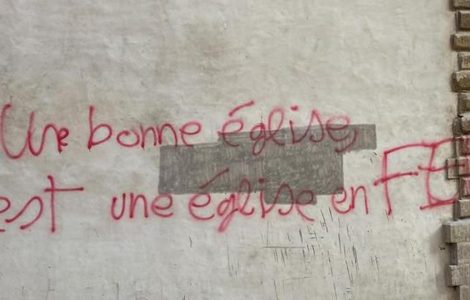 Une bonne église,
est une église en FE